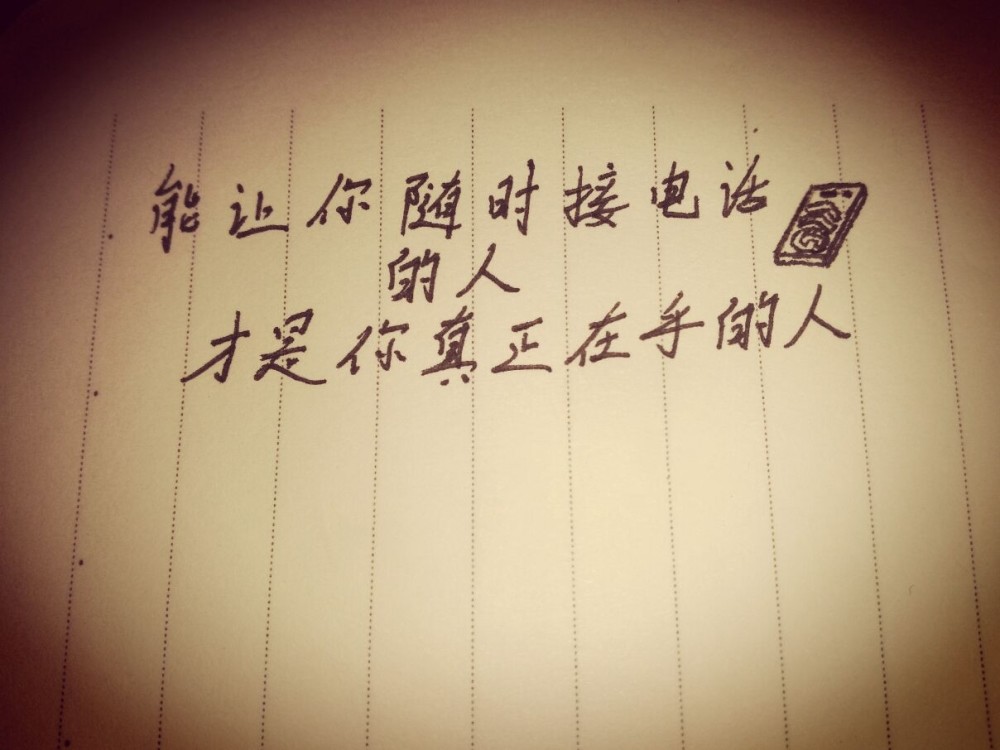 能让你随时接电话
的人
才是你真正在乎的人